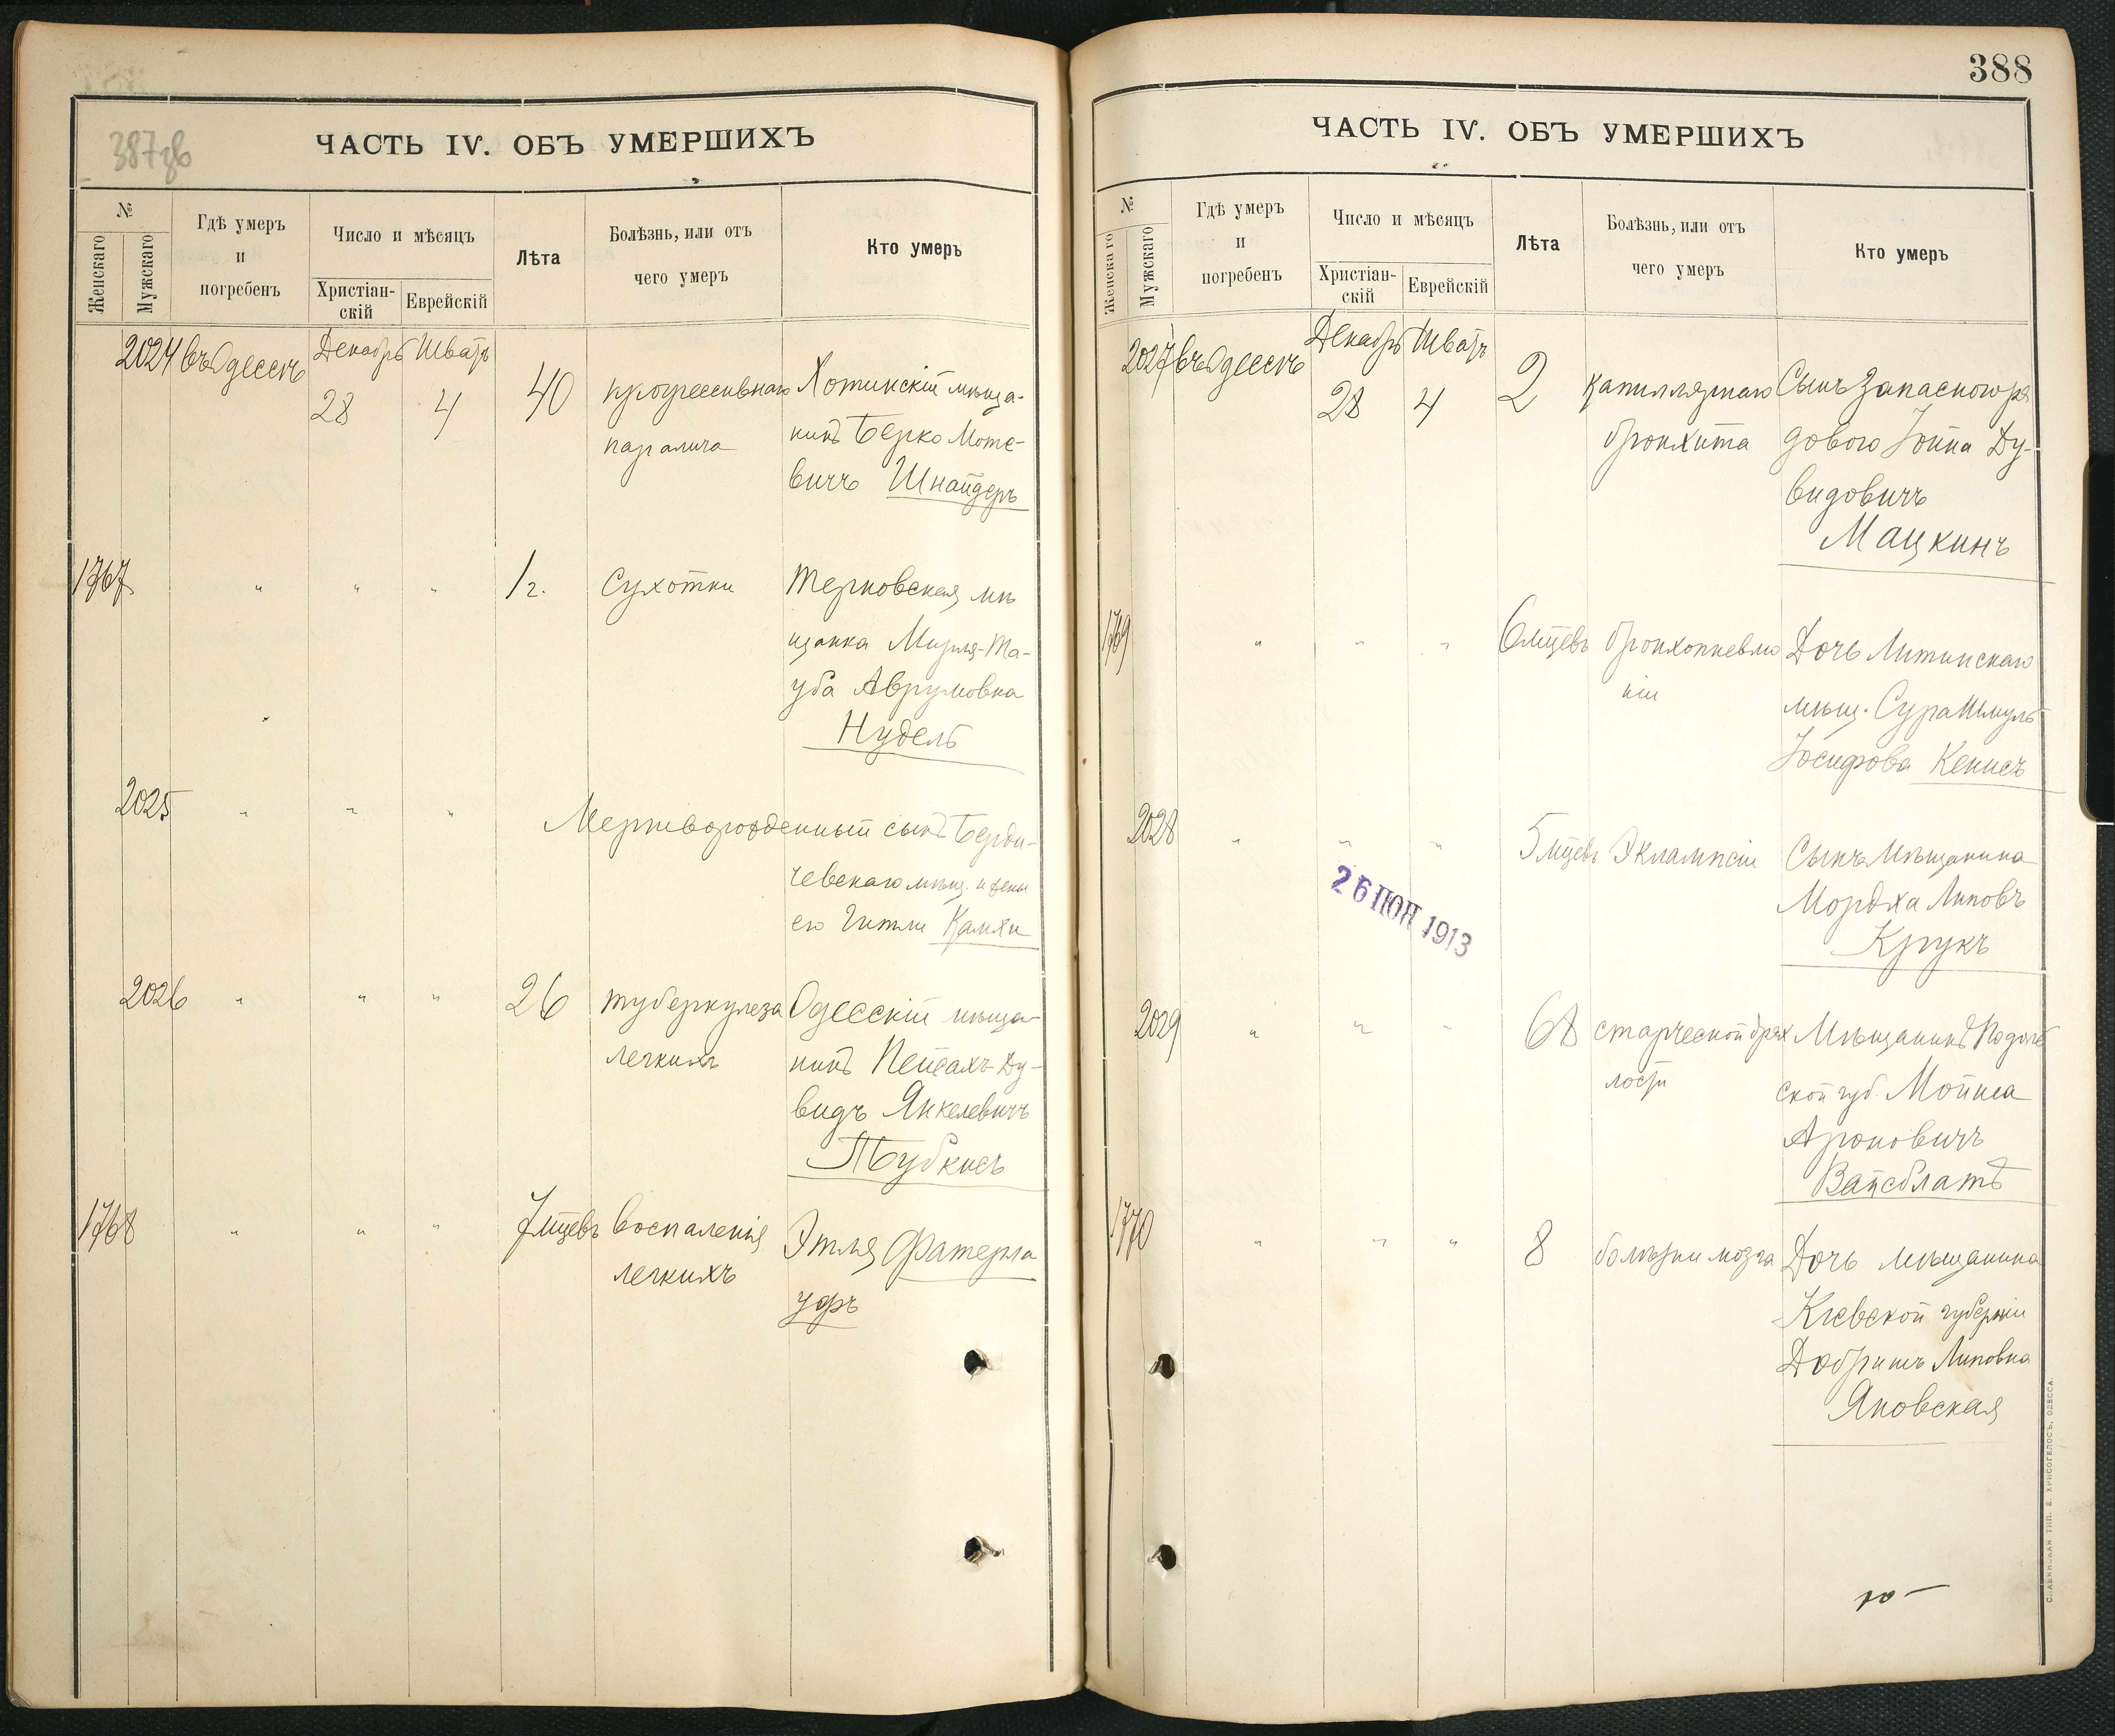 387 зв
ЧАСТЬ IV. ОБЪ УМЕРШИХЪ
№
Женскаго
Мужскаго
Гдѣ умеръ
и
погребенъ
Число и мѣсяцъ
Христіан-
скій
Еврейскій
Лѣта
Болѣзнь, или отъ
чего умеръ
Кто умеръ
2024 въ Одессѣ Декабрь Шватъ
28 4 40 прогрессивнаго Хотинскій мѣща-
паралича нинъ Берко Моте-
вичъ Шнайдеръ
1767 " " " 1 г. Сухотки Терновская мѣ
щанка Мирля-Та-
уба Аврумовна
Нудель
2025 " " " Мертворожденный сынъ Берди-
чевскаго мѣщ. и жены
его Гитли Камхи
2026 " " " 26 туберкулеза Одесскій мѣща-
легкихъ нинъ Пейсахъ-Ду-
видъ Янкелевичъ
1768 " " " 7 мцевъ воспаленія Этля Фатерга
легкихъ уфъ
388
ЧАСТЬ IV. ОБЪ УМЕРШИХЪ
№
Женскаго
Мужскаго
Гдѣ умеръ
и
погребенъ
Число и мѣсяцъ
Христіан-
скій
Еврейскій
Лѣта
Болѣзнь, или отъ
чего умеръ
Кто умеръ
2027 въ Одессѣ Декабрь Шватъ
28 4 2 капиллярнаго Сынъ запасного ря
бронхита дового Іойна Ду-
видовичъ
Мацкинъ
1769 " " " 6 мцевъ бронхопневмо Дочь Литинскаго
ніи мѣщ. Сура Шмуль
Іосифова Кенисъ
2028 " " " 5 мцевъ Эклампсіи Сынъ мѣщанина
Мордха Липовъ
Крукъ
26 ІЮН 1913
2029 " " " 68 старческой дрях Мѣщанинъ Подоль
лости ской губ. Мойша
Ароновичъ
Вайсблатъ
1770 " " " 8 болѣзни мозга Дочь мѣщанина
Кіевской губерніи
Добришъ Липовна
Яновская
СЛАВЯНСКАЯ ТИП. Е. ХРИСОГЕЛОСЪ, ОДЕССА.